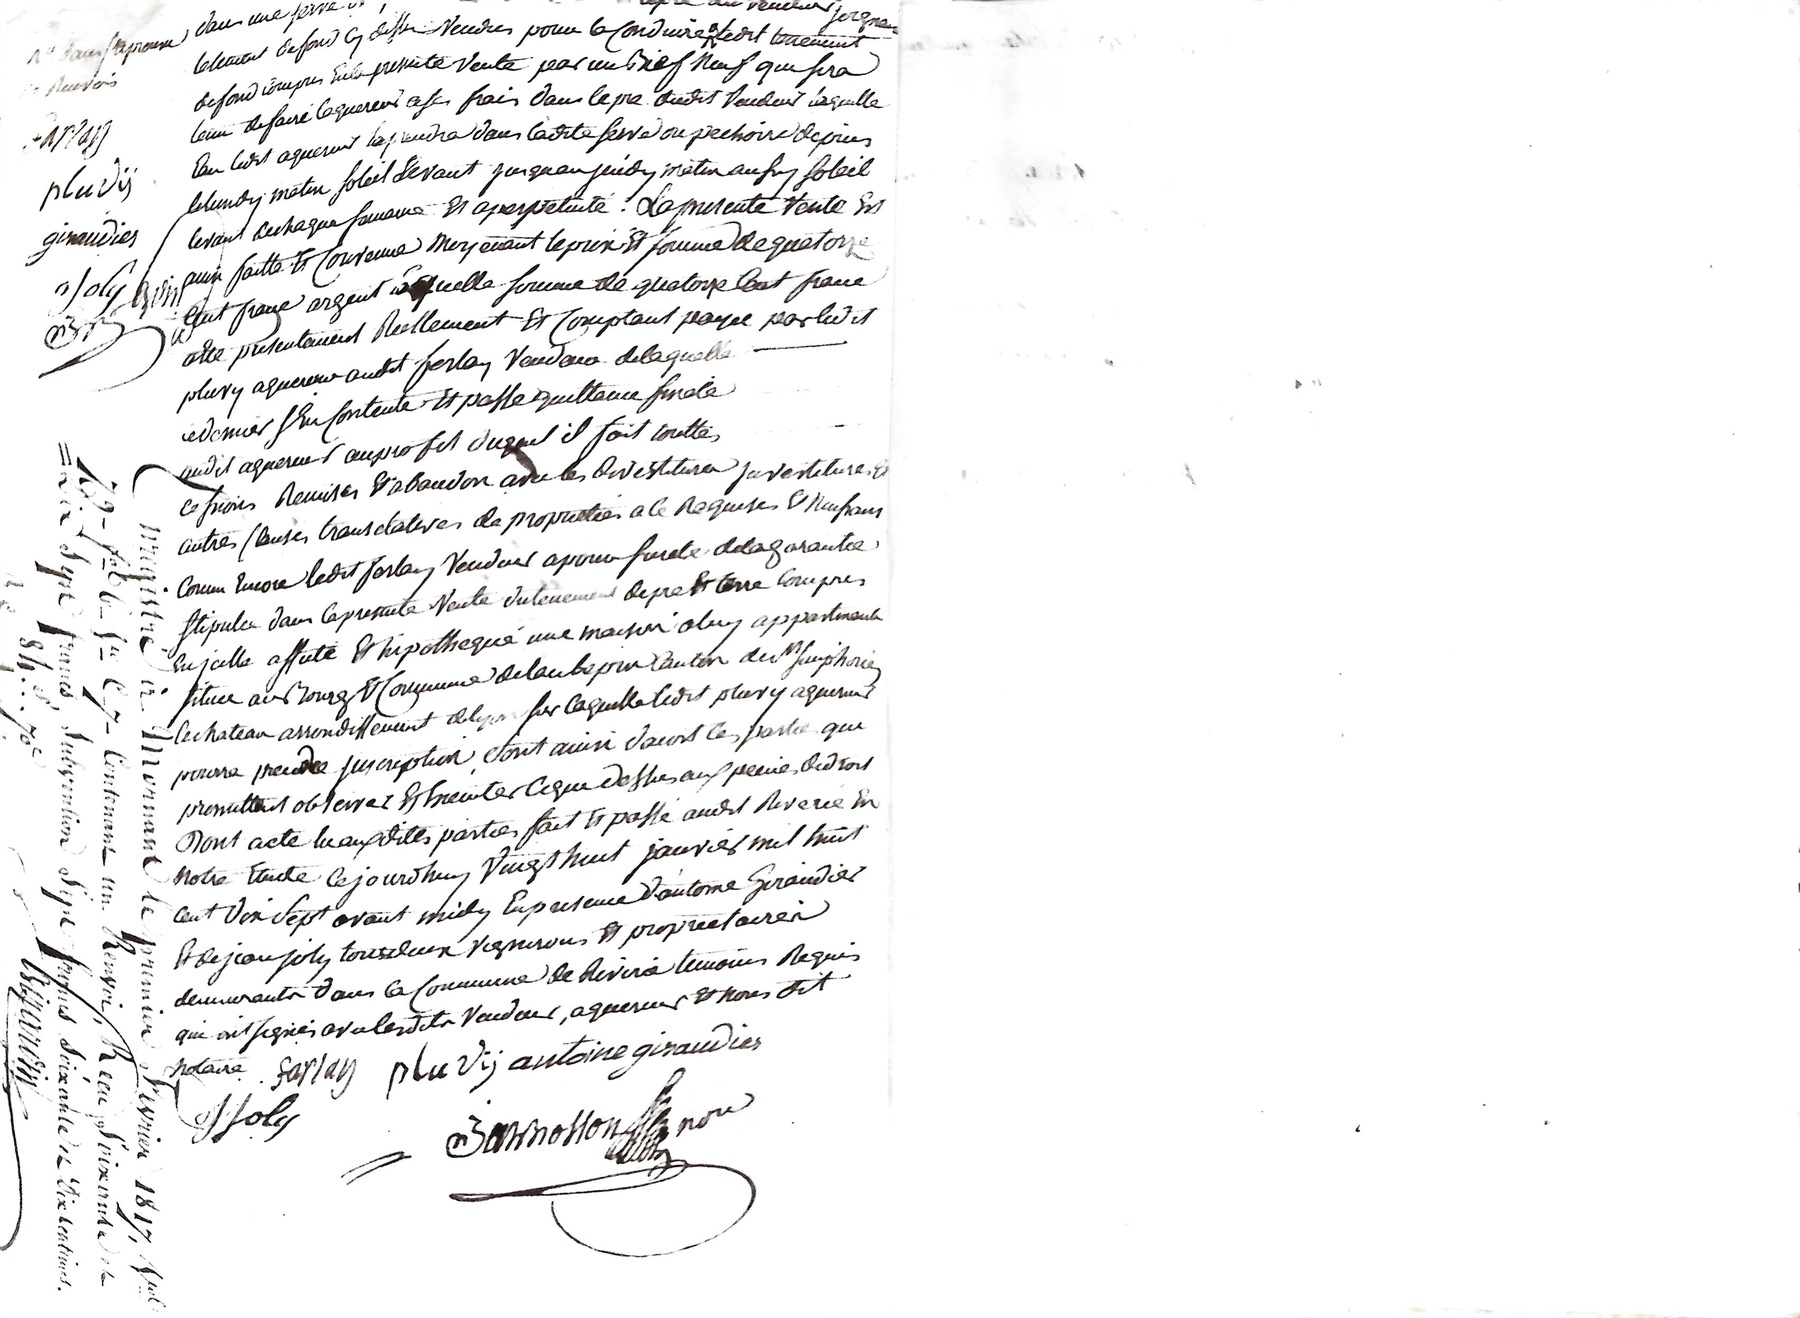 dans une serve
tenement de fond cy dessus vendus pour la conduire ledit tennement
de fond compris en la presente vente par un bief neuf que sera
tenu de faire laquereur a ses frais dans le pre dudit vendeur laquelle
eau ledit aquereur la prendra dans ladite serve ou pechoire depuis
le lundy matin soleil levant jusqu'au jeudy matin aussy soleil
levant de chaque semaine Et a perpetuité. La presente vente Est
ainsi faitte Et Convenue moyenant le prix Et somme de quatorze
Cent franc argent laquelle somme de quatorze Cent franc
a été presentement Reellement Et Comptant payée par ledit
pluvy aquereur audit ferlay vendeur de laquelle
ce dernier s'En Contente Et passe quittance
audit aquereur au profit duquel il fait touttes
cessions Remises Et abandon avec les devestiture investitures Et
autres Clauses translatives de proprietées a ce Requises Et
Comm Encore ledit ferlay vendeur a pour sureté de la garantie
stipulée dans la presente vente du tenement de pre Et terre Compris
En jcelle affecté Et hipothequé une maison a luy appartenante
située au Bourg Et Commune de laubepin Canton de St Simphorien
le chateau arrondissement de lyon sur laquelle ledit pluvy aquereur
pourra prendre jnscription, dont ainsi d'acort les partie que
promettent observer Et Executer Ce que dessus aux peines de droit
Dont acte lu auxdittes parties fait Et passé audit Riverie En
notre Etude Ce jourd'huy vingt huit janvier mil huit
cent dix sept avant midy En presence d'antoine Giraudier
Et de jean joly tous deux vignerons Et proprietaires
demeurants dans la Commune de Riverie temoins Requis
qui ont signés avec lesdits vendeur, aquereur Et nous dit
notaire
farlay pluvij antoine giraudier
J Joly
not
farlay
pluvij
giraudier
J Joly
Enregistré à Mornant le premier Février 1817, vol
Contenant un Renvoi, Reçu soixante
dix sept francs, subvention sept francs soixante dix centimes.